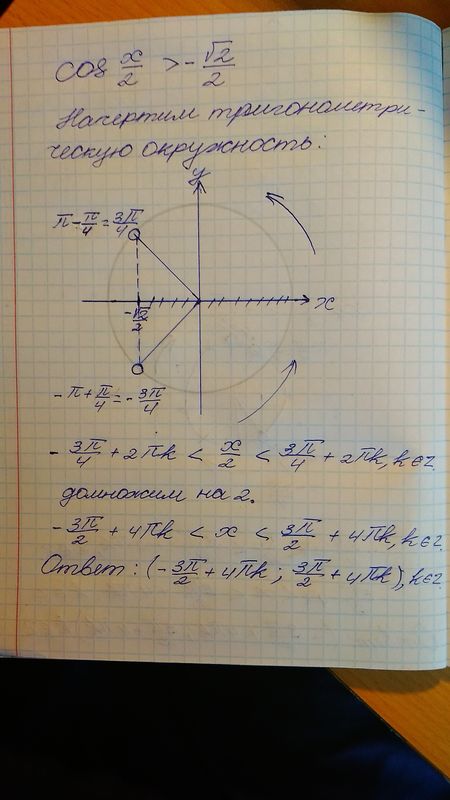 cos x/2 > -√2/2
Начертим тригонометри-
ческую окружность:
y
π - π/4 = 3π/4
x
-√2/2
-π + π/4 = -3π/4
-3π/4 + 2πk < x/2 < 3π/4 + 2πk, k∈Z.
домножим на 2.
-3π/2 + 4πk < x < 3π/2 + 4πk, k∈Z.
Ответ: (-3π/2 + 4πk; 3π/2 + 4πk), k∈Z.